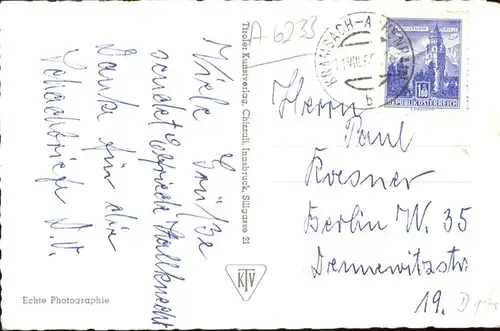 A-6233
KRAMSACH-A
1.VIII.6
b
1.80
REPUBLIK ÖSTERREICH
Viele Grüße
sendet
Danke für die
Schachbriefe D.O.
Tiroler Kunstverlag, Chizzali, Innsbruck, Sillgasse 21
KTV
Echte Photographie
Herrn
Paul
Roesner
Berlin W. 35
Dennewitzstr.
19.